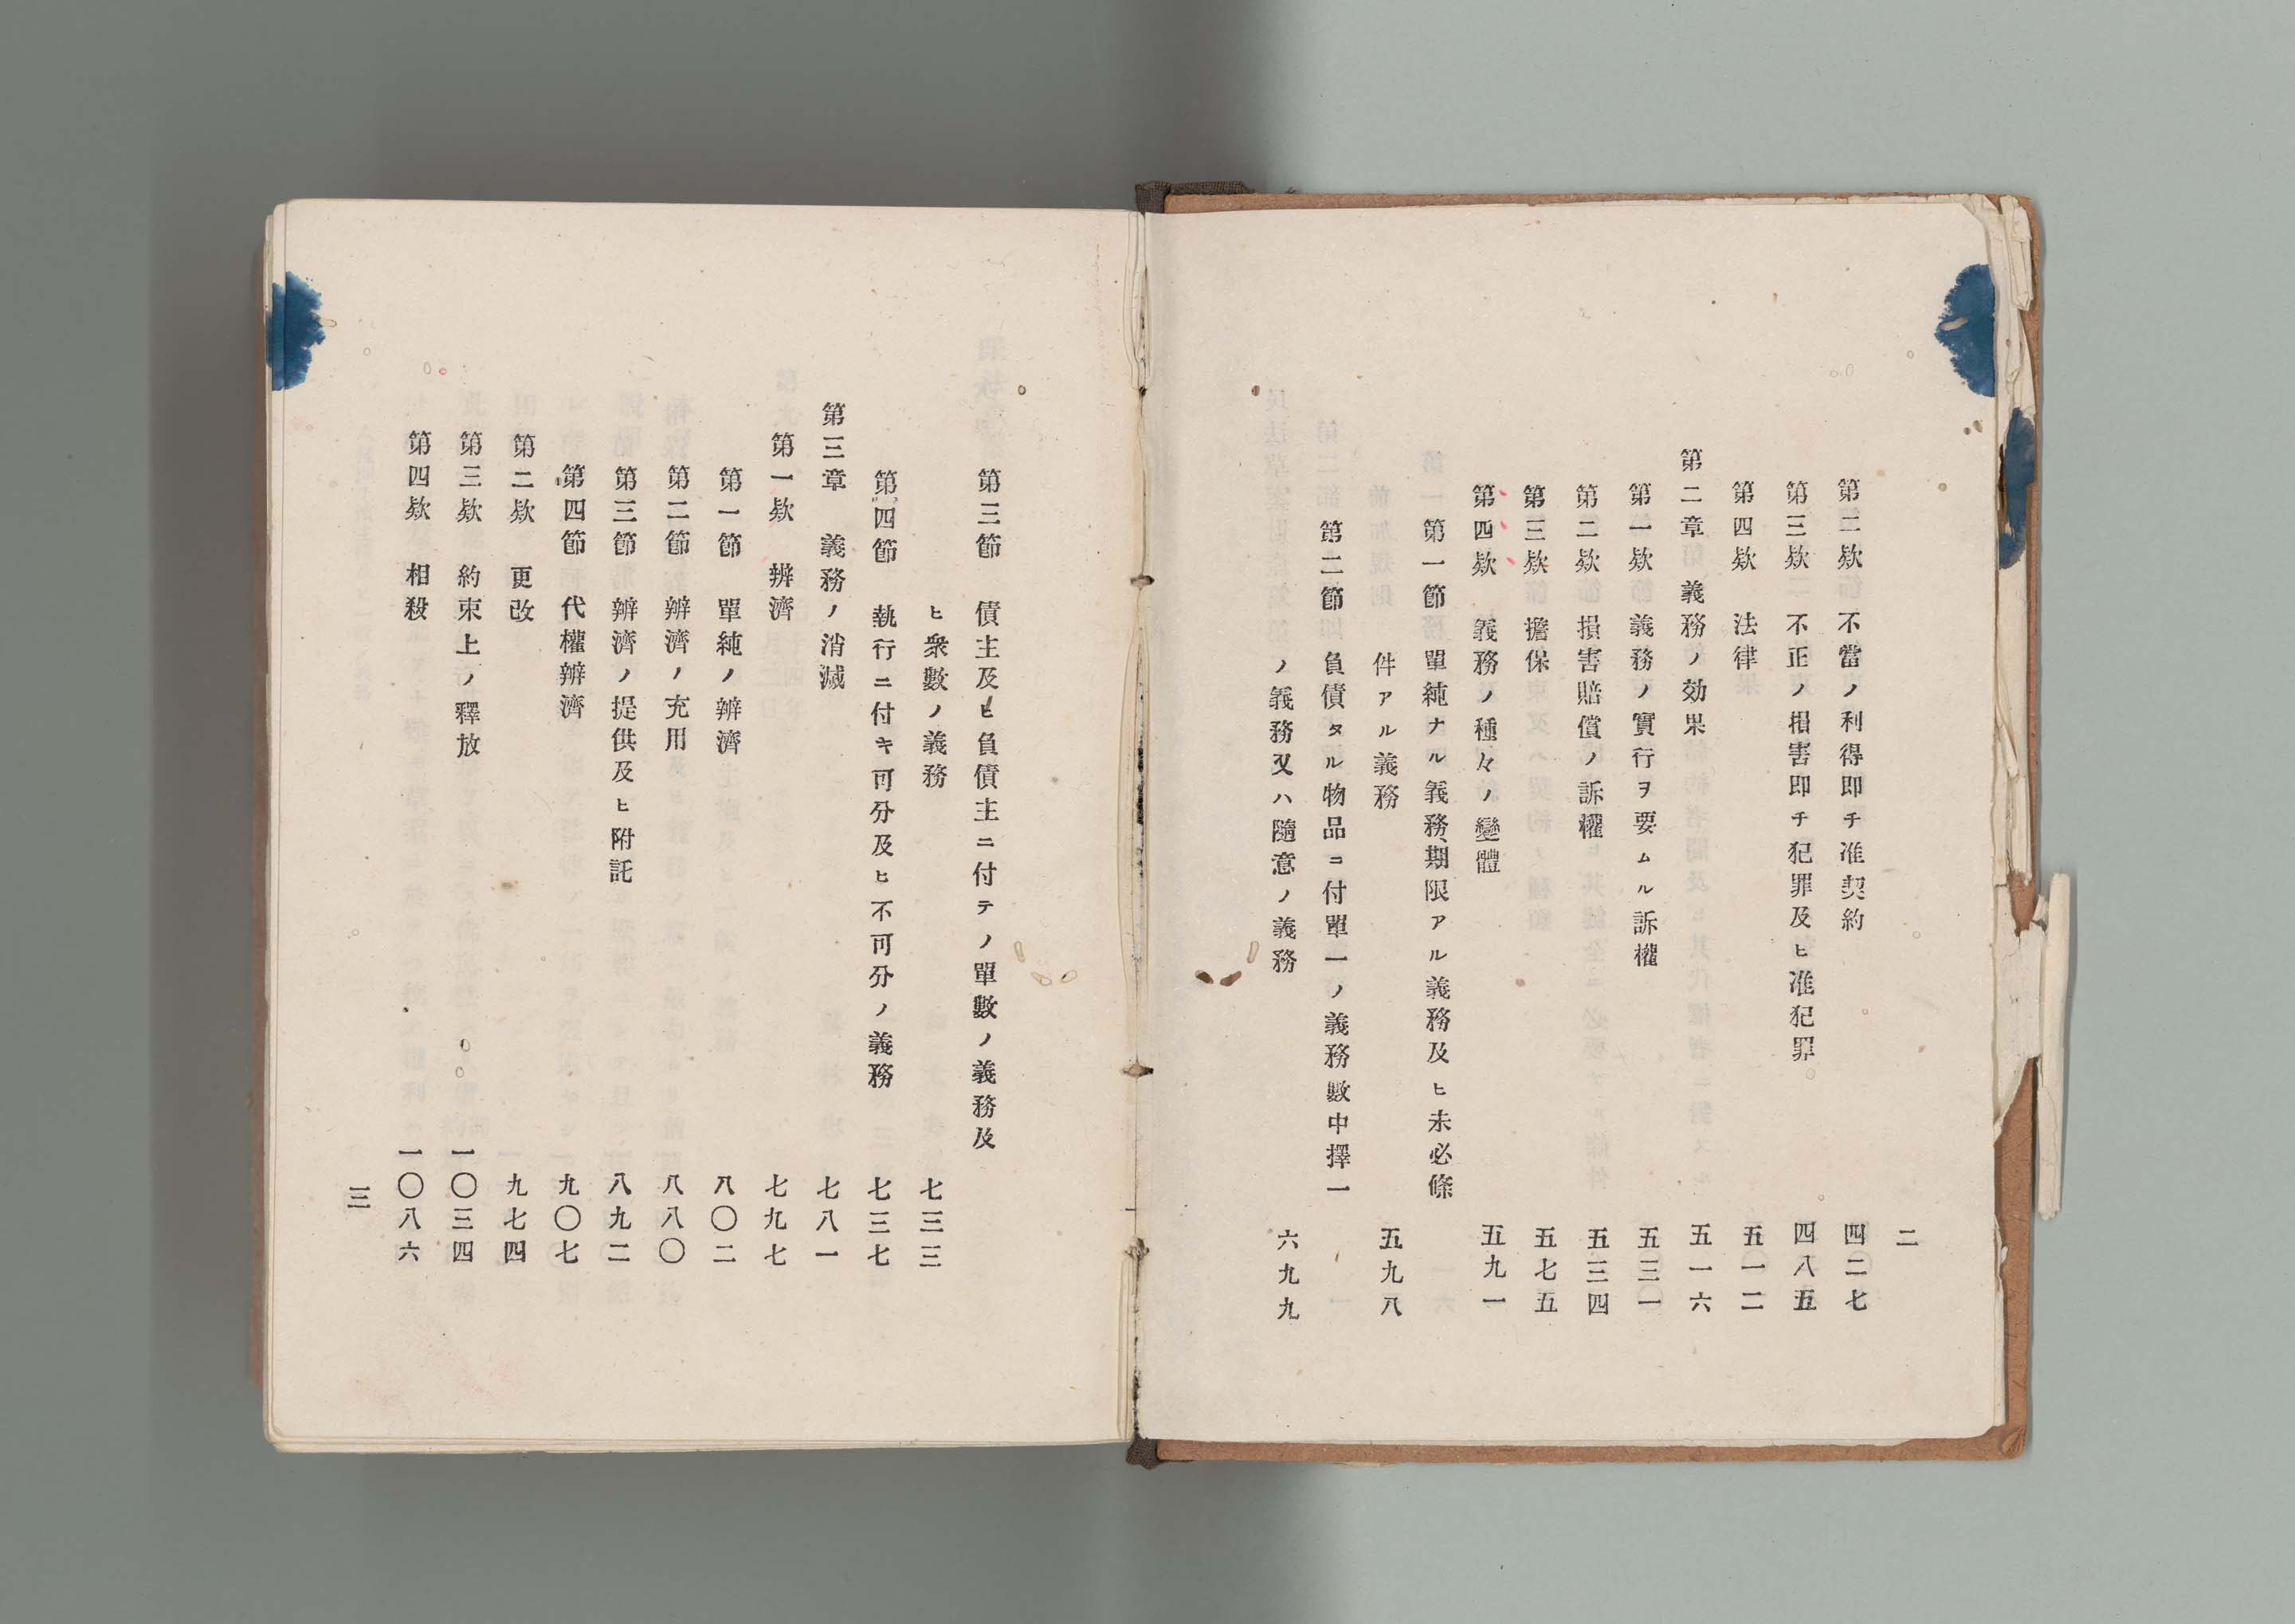 二
第二欵　不當ノ利得即チ准契約　四二七
第三欵　不正ノ損害即チ犯罪及ヒ准犯罪　四八五
第四欵　法律　五一二
第二章　義務ノ効果　五一六
第一欵　義務ノ實行ヲ要ムル訴權　五三一
第二欵　損害賠償ノ訴權　五三四
第三欵　擔保　五七五
第四欵　義務ノ種々ノ變體　五九一
第一節　單純ナル義務、期限アル義務及ヒ未必條
件アル義務　五九八
第二節　負債タル物品ニ付單一ノ義務數中擇一
ノ義務又ハ隨意ノ義務　六九九
第三節　債主及ヒ負債主ニ付テノ單數ノ義務及
ヒ衆數ノ義務　七三三
第四節　執行ニ付キ可分及ヒ不可分ノ義務　七三七
第三章　義務ノ消滅　七八一
第一欵　辨濟　七九七
第一節　單純ノ辨濟　八〇二
第二節　辨濟ノ充用　八八〇
第三節　辨濟ノ提供及ヒ附託　八九二
第四節　代權辨濟　九〇七
第二欵　更改　九七四
第三欵　約束上ノ釋放　一〇三四
第四欵　相殺　一〇八六
三